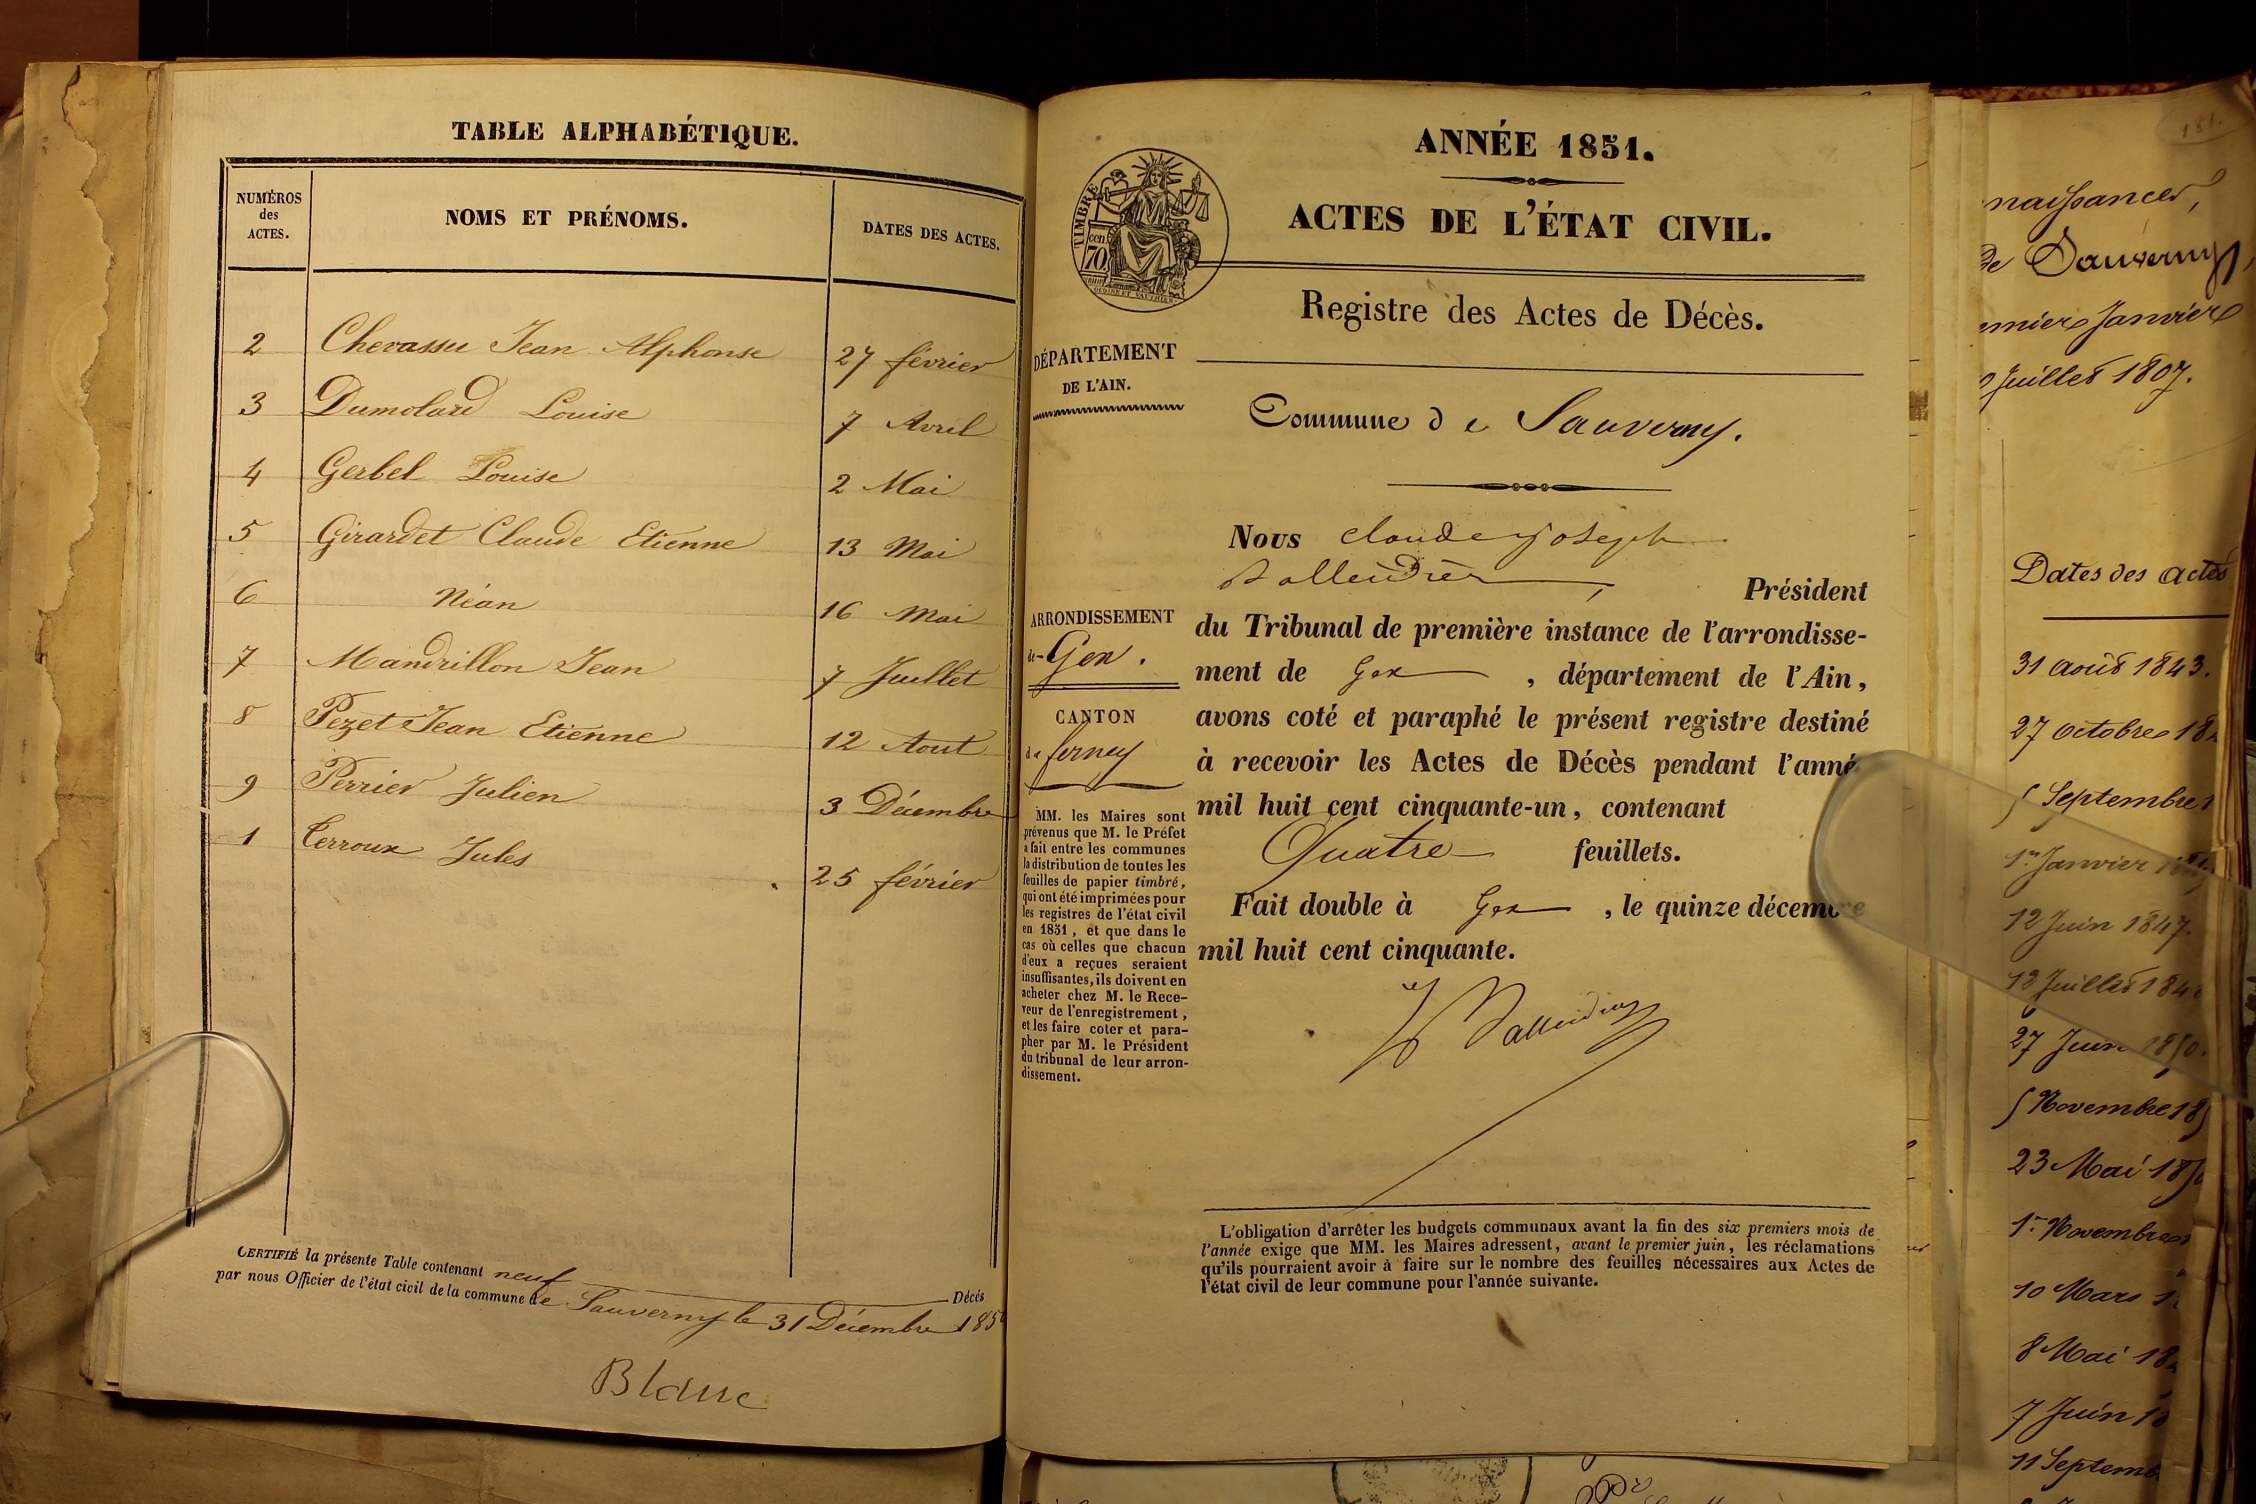 TABLE ALPHABÉTIQUE.
NUMÉROS des ACTES. NOMS ET PRÉNOMS. DATES DES ACTES.
2 Chevassu Jean Alphonse 27 février
3 Dumolard Louise 7 Avril
4 Gerbel Louise 2 Mai
5 Girardet Claude Etienne 13 Mai
6 Néan 16 Mai
7 Mandrillon Jean 7 Juillet
8 Pezet Jean Etienne 12 Aout
9 Perrier Julien 3 Décembre
1 Terroux Jules 25 février
CERTIFIÉ la présente Table contenant neuf Décès
par nous Officier de l'état civil de la commune de Sauverny le 31 Décembre 185
Blanc
ANNÉE 1851.
ACTES DE L'ÉTAT CIVIL.
TIMBRE
70
cen
Registre des Actes de Décès.
DÉPARTEMENT
DE L'AIN.
Commune de Sauverny.
ARRONDISSEMENT
de Gex.
CANTON
de ferney
MM. les Maires sont
prévenus que M. le Préfet
a fait entre les communes
la distribution de toutes les
feuilles de papier timbré,
qui ont été imprimées pour
les registres de l'état civil
en 1851, et que dans le
cas où celles que chacun
d'eux a reçues seraient
insuffisantes, ils doivent en
acheter chez M. le Rece-
veur de l'enregistrement,
et les faire coter et para-
pher par M. le Président
du tribunal de leur arron-
dissement.
Nous claude joseph
Président
du Tribunal de première instance de l'arrondisse-
ment de Gex , département de l'Ain,
avons coté et paraphé le présent registre destiné
à recevoir les Actes de Décès pendant l'anné
mil huit cent cinquante-un, contenant
Quatre feuillets.
Fait double à Gex , le quinze décembre
mil huit cent cinquante.
L'obligation d'arrêter les budgets communaux avant la fin des six premiers mois de
l'année exige que MM. les Maires adressent, avant le premier juin, les réclamations
qu'ils pourraient avoir à faire sur le nombre des feuilles nécessaires aux Actes de
l'état civil de leur commune pour l'année suivante.
181.
naissances,
de Sauverny,
Janvier
Juillet 1807.
Dates des actes
31 août 1843.
27 octobre 18
5 Septembre 1
1er Janvier 18
12 Juin 1847.
12 Juillet 184
27 Juin 1850.
5 Novembre 18
23 Mai 18
1er Novembre
10 Mars 1
8 Mai 18
7 Juin 18
11 Septemb